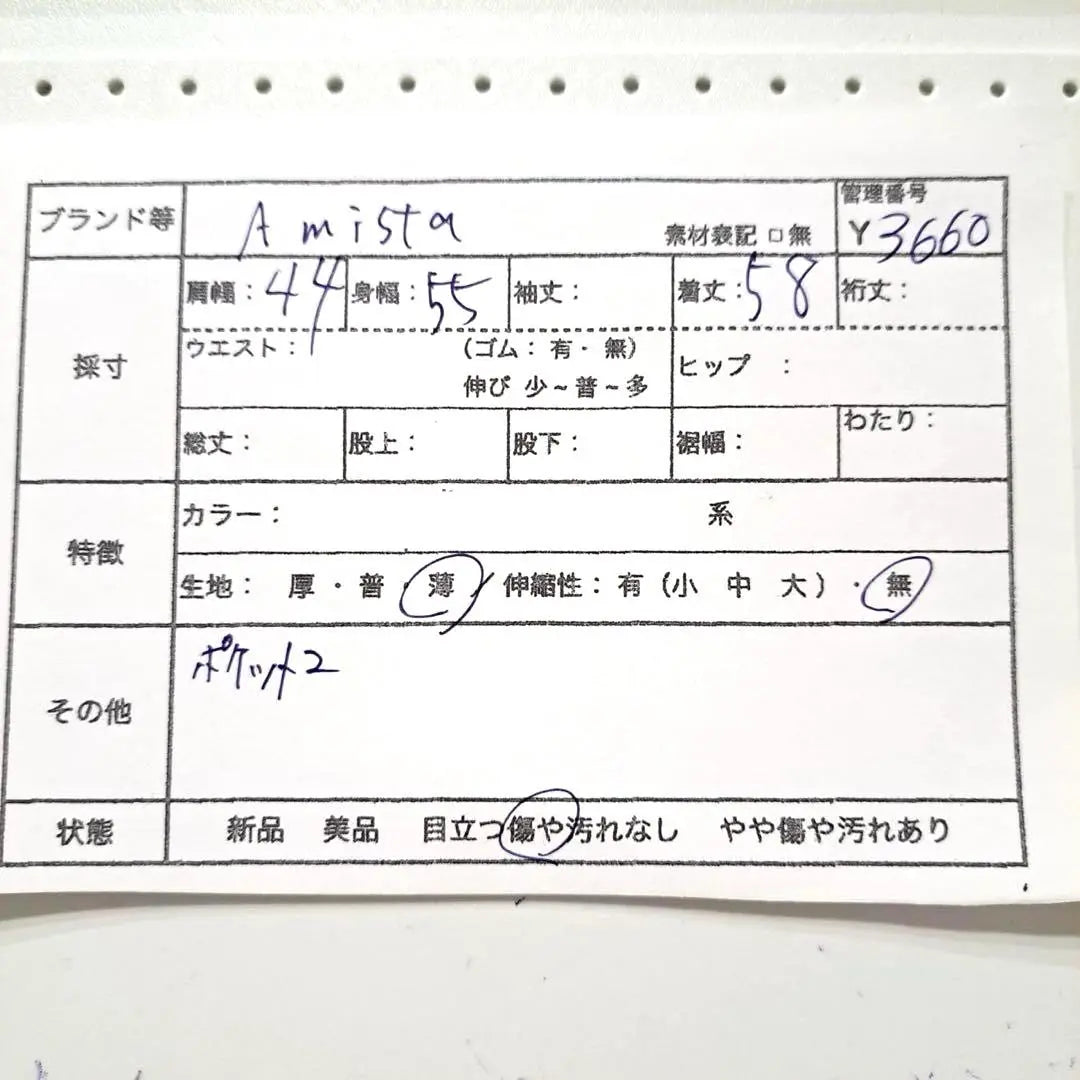 ブランド等 Amista 素材表記 □ 無 管理番号
Y3660
採寸 肩幅：44 身幅：55 袖丈： 着丈：58 裄丈：
ウエスト： （ゴム： 有・ 無） ヒップ ：
伸び 少～普～多
総丈： 股上： 股下： 裾幅： わたり：
特徴 カラー： 系
生地： 厚・普・薄 / 伸縮性：有（小 中 大）・無
その他 ポケット2
状態 新品 美品 目立つ傷や汚れなし やや傷や汚れあり